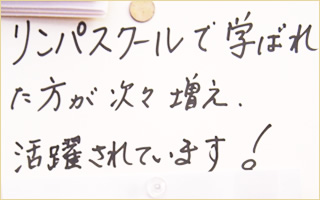 リンパスクールで学ばれ
た方が次々増え、
活躍されています!